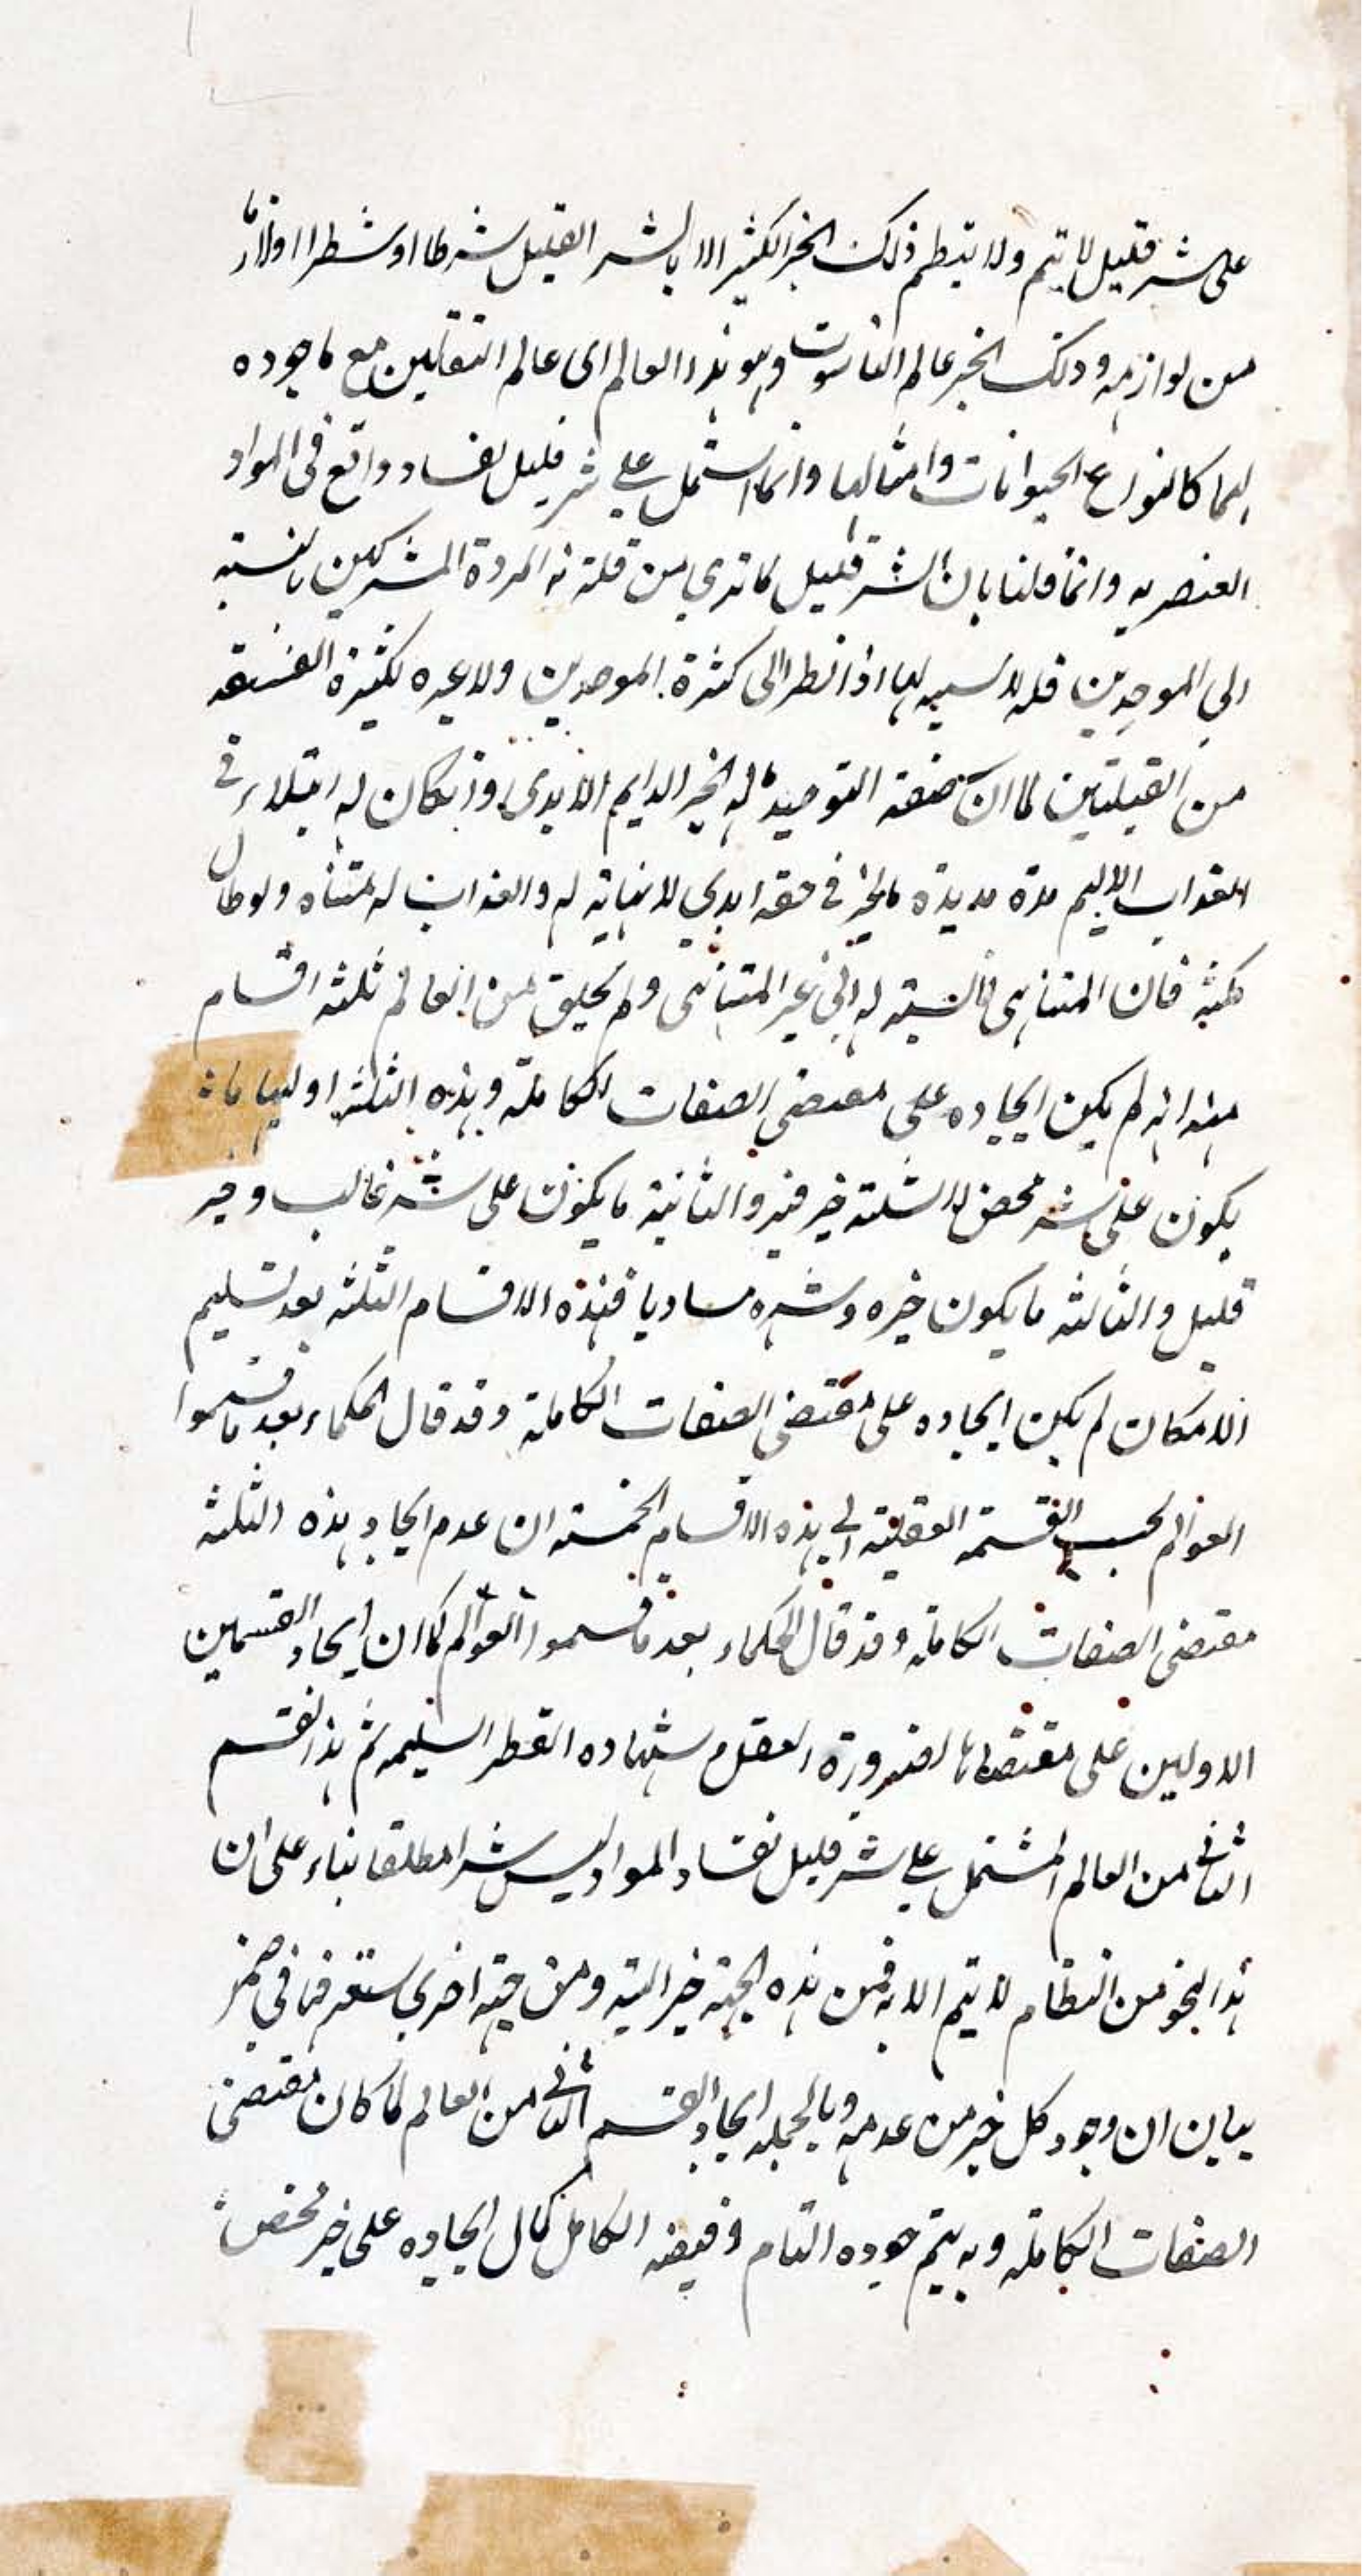 على شر قليل لا يتم ولا ينتظم ذلك الخير الكثير الا بالشر القليل شرطا او شطرا او لازما
من لوازمه وذلك الخير عالم الناسوت وهو هذا العالم اى عالم الثقلين مع ما جوده
لهما كانواع الحيوانات وامثالها وانما اشتمل على شر قليل لفساد واقع فى المواد
العنصريه وانما قلنا بان الشر قليل لما ترى من قلة المردة المشركين بالنسبة
الى الموحدين قله لا نسبه لها اذا نظر الى كثرة الموحدين ولا عبره بكثرة الفسقه
من القبلتين لما ان صفة التوحيد له الخير الدايم الابدى وان كان له ابتلاء فى
العذاب الاليم مدة مديدة فالخير فى حقه ابدي لا نهاية له والعذاب له متناه ولو طال
مكثه فان المتناهى لا نسبة له الى غير المتناهى ولم يخلق من العالم ثلثه اقسام
منه انه لم يكن ايجاده على مقتضى الصفات الكاملة وهذه الثلثه اوليها ما
يكون على شر محض لا شائبة خير فيه والثانية ما يكون على شر غالب وخير
قليل والثالثه ما يكون خيره وشره مساويا فهذه الاقسام الثلثه بعد تسليم
الامكان لم يكن ايجاده على مقتضى الصفات الكاملة وقد قال الحكماء بعد ما قسموا
العوالم بحسب القسمة العقلية الى هذه الاقسام الخمسة ان عدم ايجاد هذه الثلثه
مقتضى الصفات الكاملة وقد قال الحكماء بعد ما قسموا العوالم كما ان ايجاد القسمين
الاولين على مقتضاها لضرورة العقل وشهاده الفطر السليمه ثم هذا القسم
الثانى من العالم المشتمل على شر قليل لفساد المواد ليس شرا مطلقا بناء على ان
هذا النحو من النظام لا يتم الا به فمن هذه الجهة خير البتة ومن جهة اخرى ستعرفها فى حيز
بيان ان وجود كل خير من عدمه وبالجمله ايجاد القسم الثانى من العالم لما كان مقتضى
الصفات الكاملة وبه يتم جوده التام وفيضه الكامل كان ايجاده على خير محض